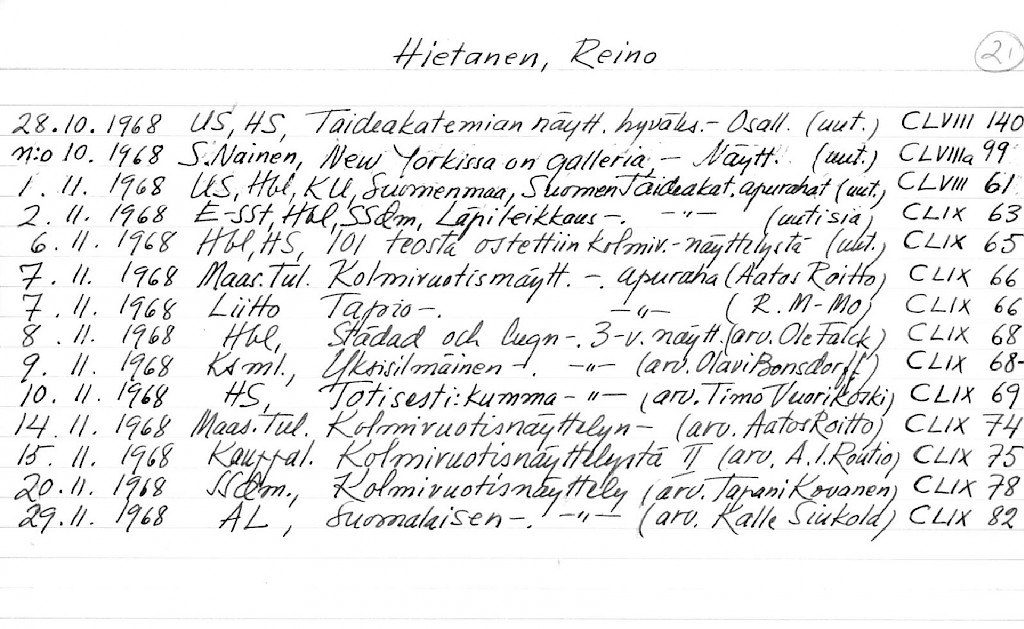 Hietanen, Reino
21
28.10.1968 US, HS, Taideakatemian näytt. hyväks.- Osall. (uut.) CLVIII 140
n:o 10. 1968 S. Nainen, New Yorkissa on galleria - Näytt. (uut.) CLVIIIa 99
1. 11. 1968 US, Hbl, KU, Suomenmaa, Suomen Taideakat. apurahat (uut.) CLVIII 61
2. 11. 1968 E-sst, Hbl, SSdm, Läpileikkaus -. -"- (uutisia) CLIX 63
6. 11. 1968 Hbl, HS, 101 teosta ostettiin kolmiv.-näyttelystä (uut.) CLIX 65
7. 11. 1968 Maas. Tul. Kolmivuotisnäytt. -. apuraha (Aatos Roitto) CLIX 66
7. 11. 1968 Liitto Tapio -. -"- (R. M-Mo) CLIX 66
8. 11. 1968 Hbl, Städad och lugn -. 3-v. näytt. (arv. Ole Falck) CLIX 68
9. 11. 1968 Ksml., Yksisilmäinen -. -"- (arv. Olavi Bonsdorff) CLIX 68-
10. 11. 1968 HS, Totisesti: kumma - -"- (arv. Timo Vuorikoski) CLIX 69
14. 11. 1968 Maas. Tul. Kolmivuotisnäyttelyn - (arv. Aatos Roitto) CLIX 74
15. 11. 1968 Kauppal. Kolmivuotisnäyttelystä II (arv. A. I. Routio) CLIX 75
20. 11. 1968 SSdm., Kolmivuotisnäyttely (arv. Tapani Kovanen) CLIX 78
29. 11. 1968 AL, Suomalaisen -. -"- (arv. Kalle Siukola) CLIX 82